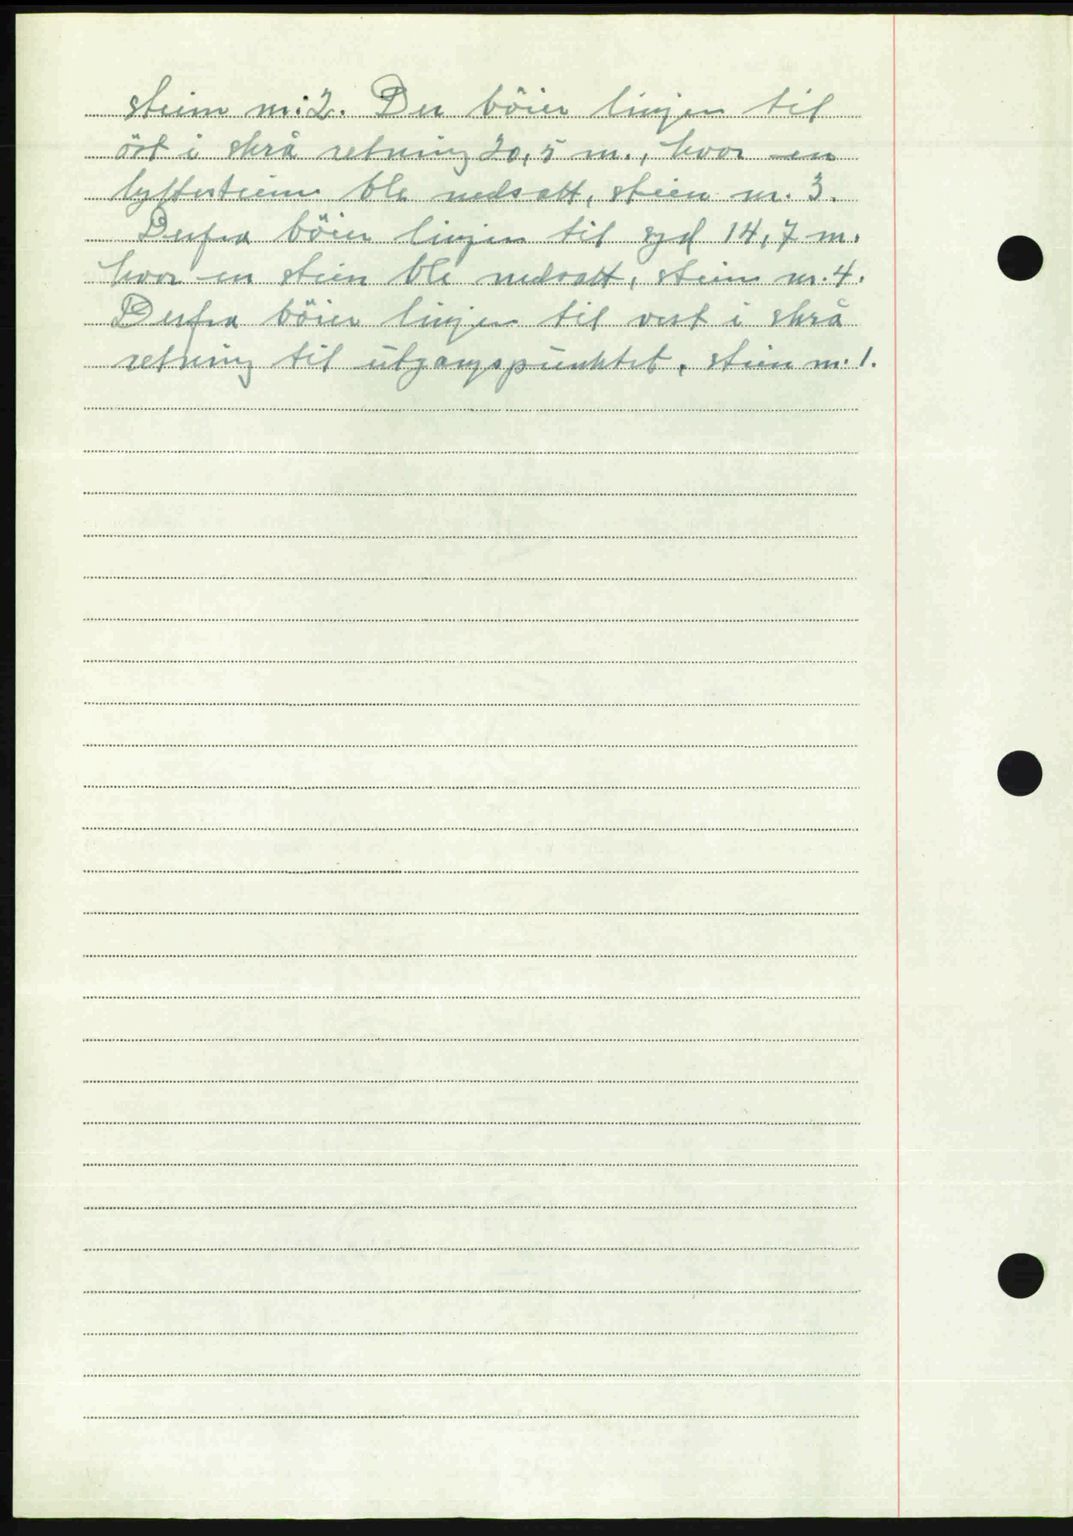 stein nr. 2. Der böier linjen til
öst i skrå retning 20,5 m., hvor en
lyftestein ble nedsatt, stein nr. 3.
Derfra böier linjen til syd 14,7 m.
hvor en stein ble nedsatt, stein nr. 4.
Derfra böier linjen til vest i skrå
retning til utgangspunktet, stein nr. 1.